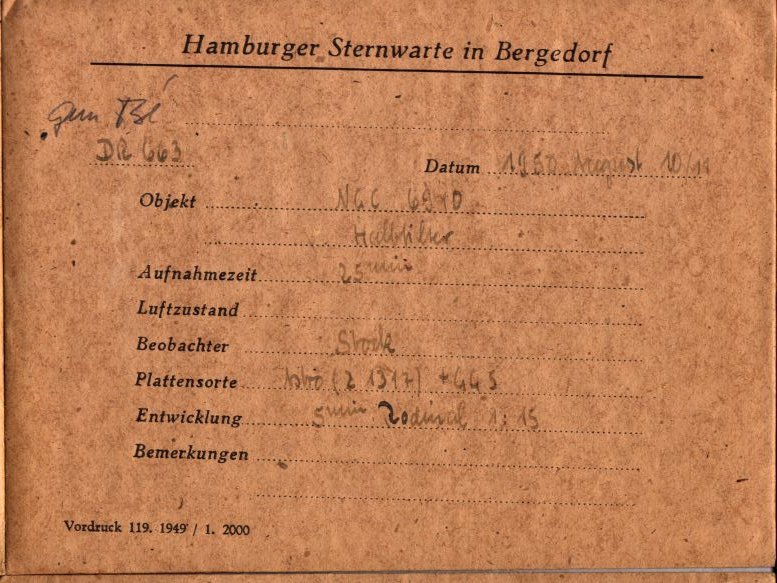 Hamburger Sternwarte in Bergedorf
gem
DR 663
Datum 1950 August 10/11
Objekt NGC 6910
Halbfilter
Aufnahmezeit 25 min
Luftzustand
Beobachter Stock
Plattensorte
Entwicklung 5 min Rodinal 1:15
Bemerkungen
Vordruck 119. 1949 / 1. 2000